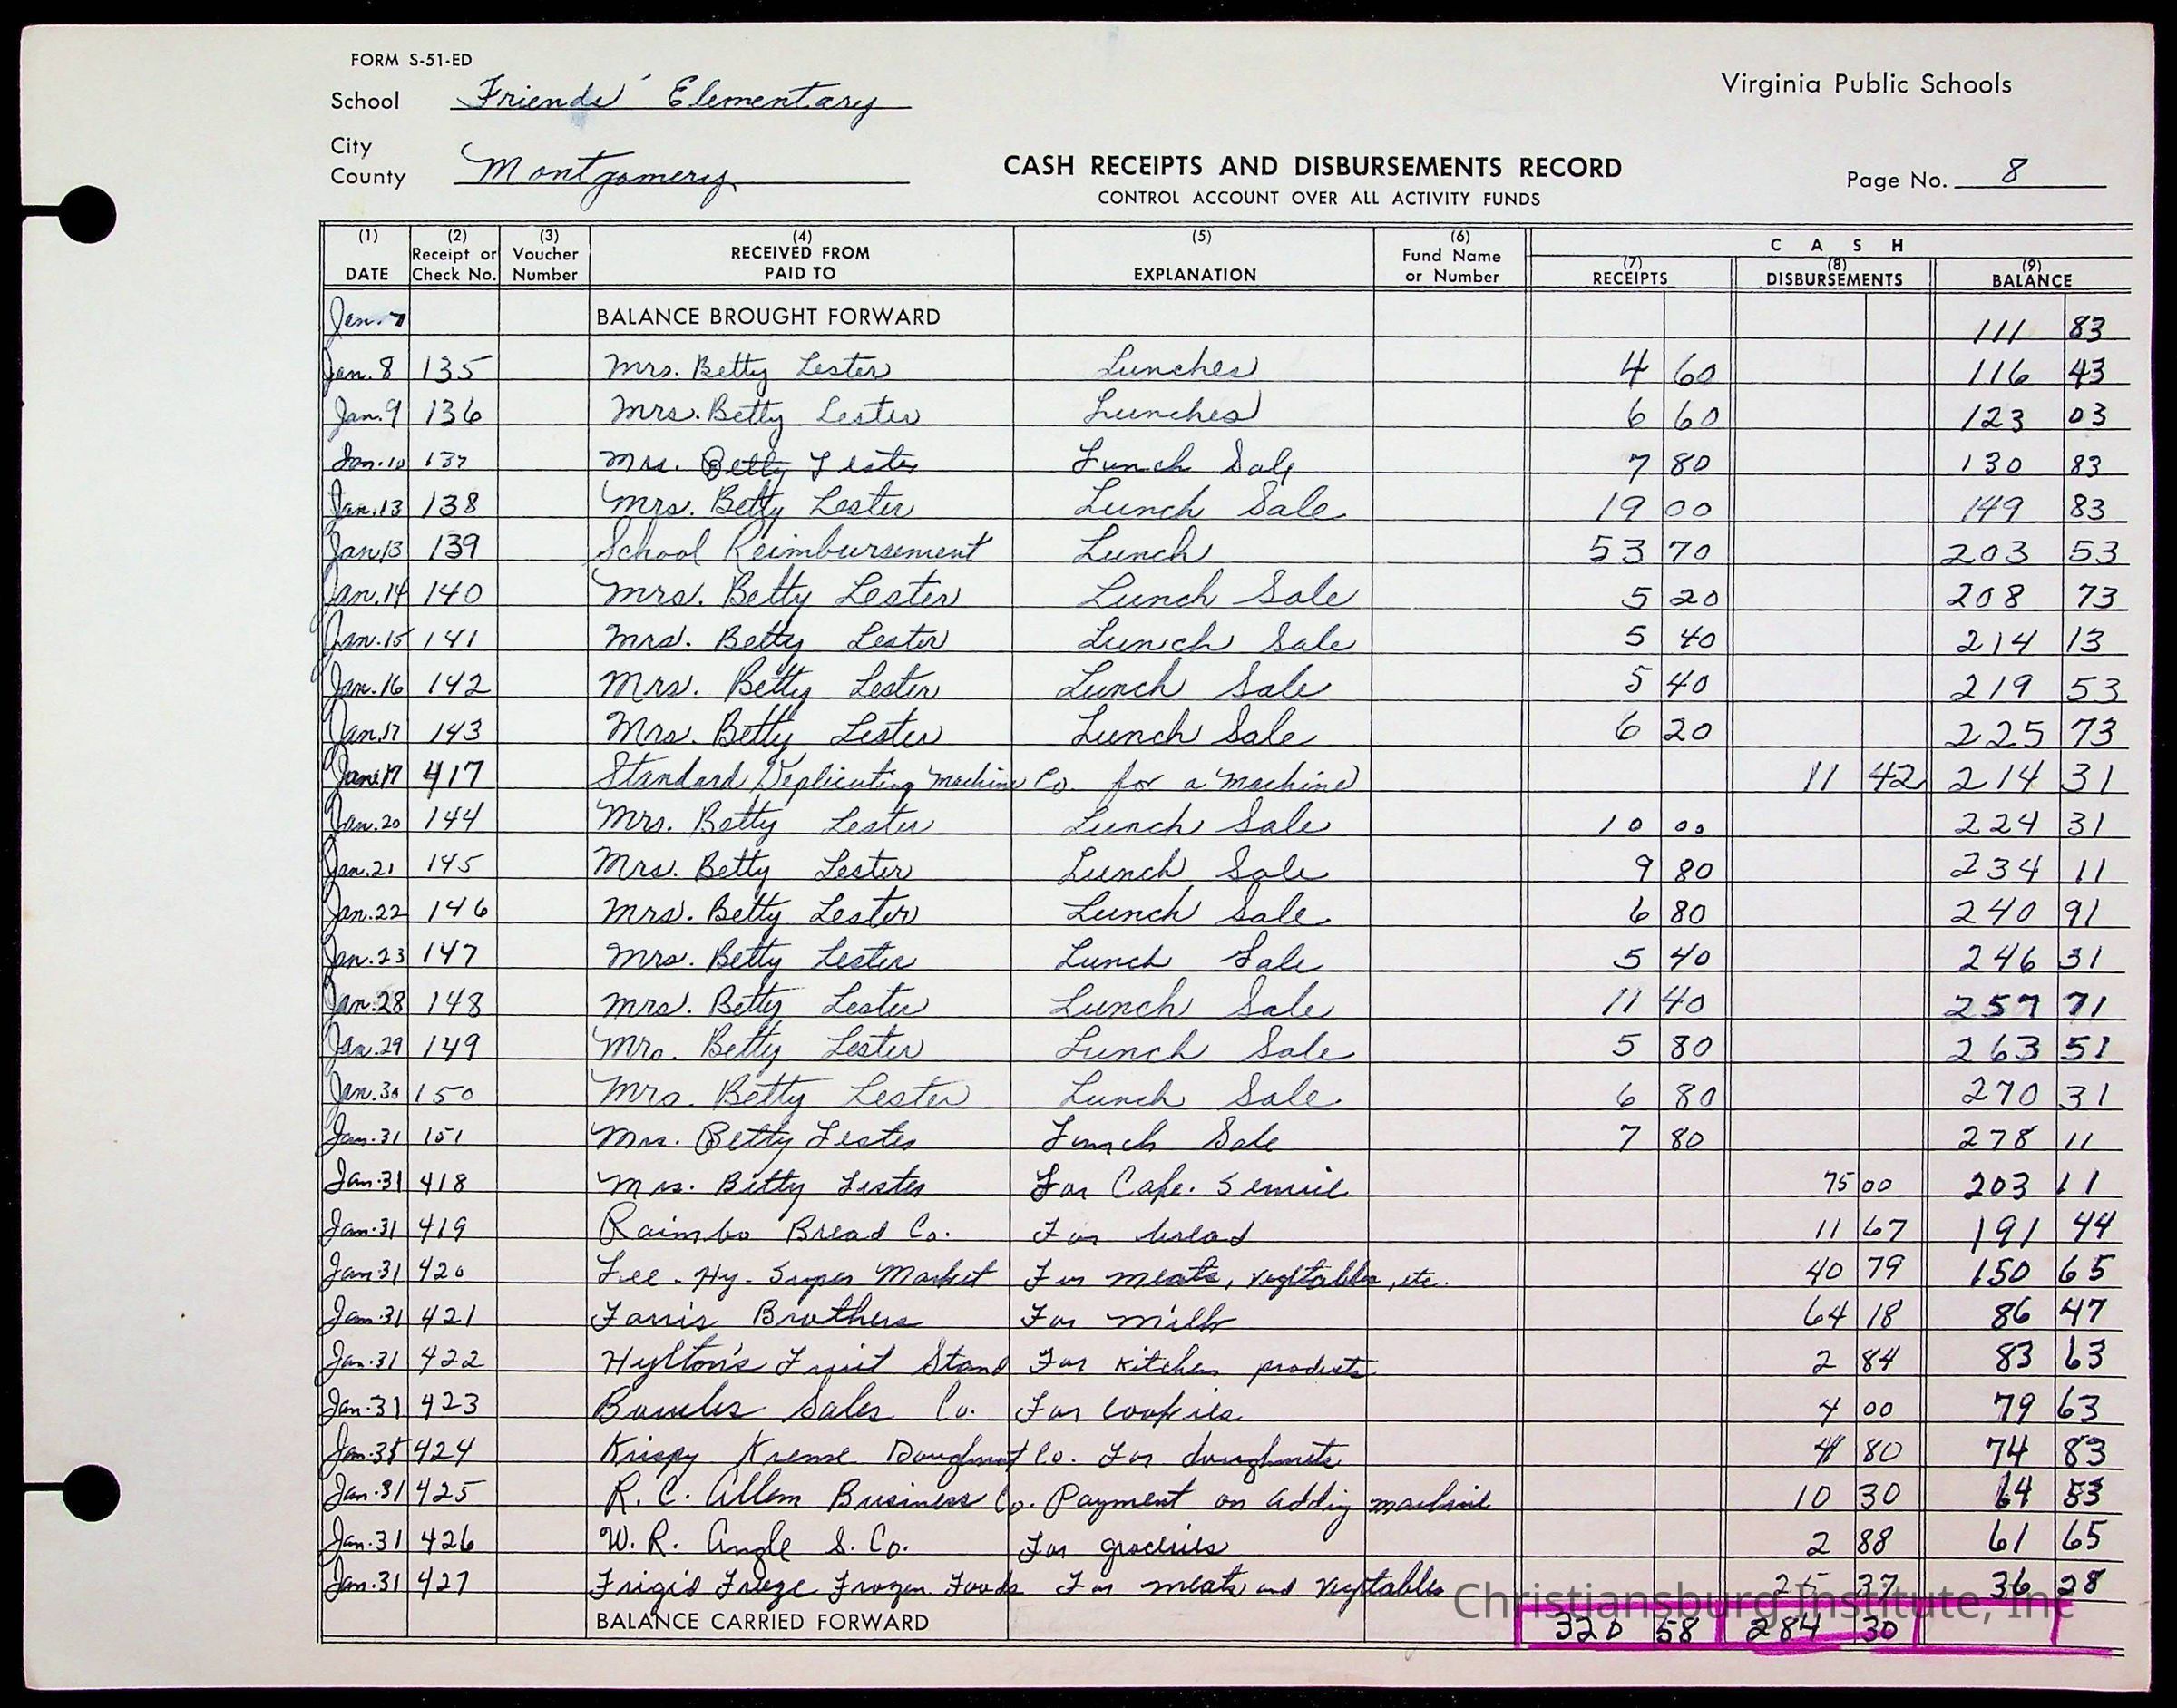 FORM S-51-ED
School Friends' Elementary
Virginia Public Schools
City
County Montgomery
CASH RECEIPTS AND DISBURSEMENTS RECORD
CONTROL ACCOUNT OVER ALL ACTIVITY FUNDS
Page No. 8
(1) DATE (2) Receipt or Check No. (3) Voucher Number (4) RECEIVED FROM PAID TO (5) EXPLANATION (6) Fund Name or Number CASH (7) RECEIPTS (8) DISBURSEMENTS (9) BALANCE
Jan. 7 BALANCE BROUGHT FORWARD 111 83
Jan. 8 135 Mrs. Betty Lester Lunches 4 60 116 43
Jan. 9 136 Mrs. Betty Lester Lunches 6 60 123 03
Jan. 10 137 Mrs. Betty Lester Lunch Sale 7 80 130 83
Jan. 13 138 Mrs. Betty Lester Lunch Sale 19 00 149 83
Jan 13 139 School Reimbursement Lunch 53 70 203 53
Jan. 14 140 Mrs. Betty Lester Lunch Sale 5 20 208 73
Jan. 15 141 Mrs. Betty Lester Lunch Sale 5 40 214 13
Jan. 16 142 Mrs. Betty Lester Lunch Sale 5 40 219 53
Jan. 17 143 Mrs. Betty Lester Lunch Sale 6 20 225 73
Jan. 17 417 Standard Duplicating Machine Co. for a Machine 11 42 214 31
Jan. 20 144 Mrs. Betty Lester Lunch Sale 10 00 224 31
Jan. 21 145 Mrs. Betty Lester Lunch Sale 9 80 234 11
Jan. 22 146 Mrs. Betty Lester Lunch Sale 6 80 240 91
Jan. 23 147 Mrs. Betty Lester Lunch Sale 5 40 246 31
Jan. 28 148 Mrs. Betty Lester Lunch Sale 11 40 257 71
Jan. 29 149 Mrs. Betty Lester Lunch Sale 5 80 263 51
Jan. 30 150 Mrs. Betty Lester Lunch Sale 6 80 270 31
Jan. 31 151 Mrs. Betty Lester Lunch Sale 7 80 278 11
Jan. 31 418 Mrs. Betty Lester For Cafe. Service 75 00 203 11
Jan. 31 419 Raimbo Bread Co. For bread 11 67 191 44
Jan. 31 420 Lee-Hy. Super Market For meats, vegetables, etc. 40 79 150 65
Jan. 31 421 Farris Brothers For milk 64 18 86 47
Jan. 31 422 Hylton's Fruit Stand For kitchen products 2 84 83 63
Jan. 31 423 Sales Co. For cookies 4 00 79 63
Jan. 31 424 Krispy Kreme Doughnut Co. For doughnuts 4 80 74 83
Jan. 31 425 R. C. Allen Business Co. Payment on adding machine 10 30 64 53
Jan. 31 426 W. R. Angle S. Co. For groceries 2 88 61 65
Jan. 31 427 Frigid Freeze Frozen Foods For meats and vegetables 25 37 36 28
BALANCE CARRIED FORWARD 320 58 284 30
Christiansburg Institute, Inc